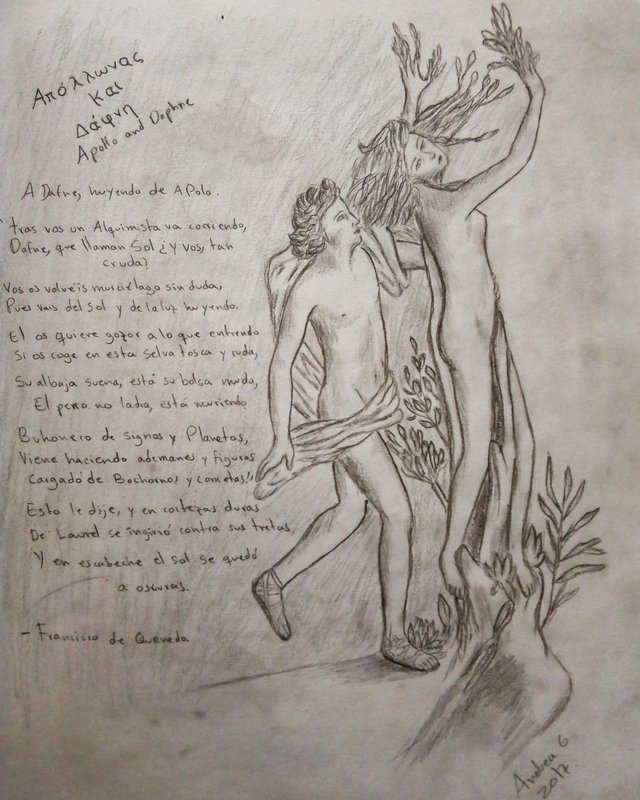 Απόλλωνας
και
Δάφνη
Apollo and Daphne
A Dafne, huyendo de Apolo.
tras vos un Alquimista va corriendo,
Dafne, que llaman Sol ¿Y vos, tan
cruda?
Vos os volvéis murciélago sin duda,
Pues vais del Sol y de la luz huyendo.
El os quiere gozar a lo que entiendo
Si os coge en esta selva tosca y ruda,
Su aljaba suena, está su bolsa muda,
El perro, no ladra, está muriendo
Buhonero de signos y Planetas,
Viene haciendo ademanes y figuras
Cargado de Bochornos y cometas!
Esto le dije, y en cortezas duras
De Laurel se ingirió contra sus tretas,
Y en escabeche el sol se quedó
a oscuras.
- Francisco de Quevedo.
Andrea G
2017.